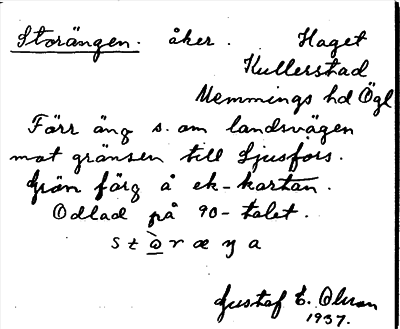 Storängen. åker. Haget
Kullerstad
Memmings hd Ögl
Förr äng s. om landsvägen
mot gränsen till Ljusfors.
Grön färg å ek-kartan.
Odlad på 90-talet.
s t ò̲ r æ ŋ a
Gustaf E. Olsson
1937.